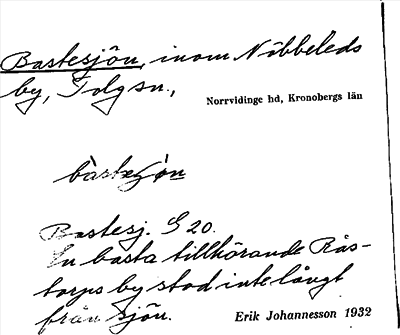 Bastesjön, inom Nöbbeleds
by, Tolg sn.,
Norrvidinge hd, Kronobergs län
bàstesjö̀n
Bastesj. G 20.
En basta tillhörande Rås-
torps by stod inte långt
från sjön.
Erik Johannesson 1932